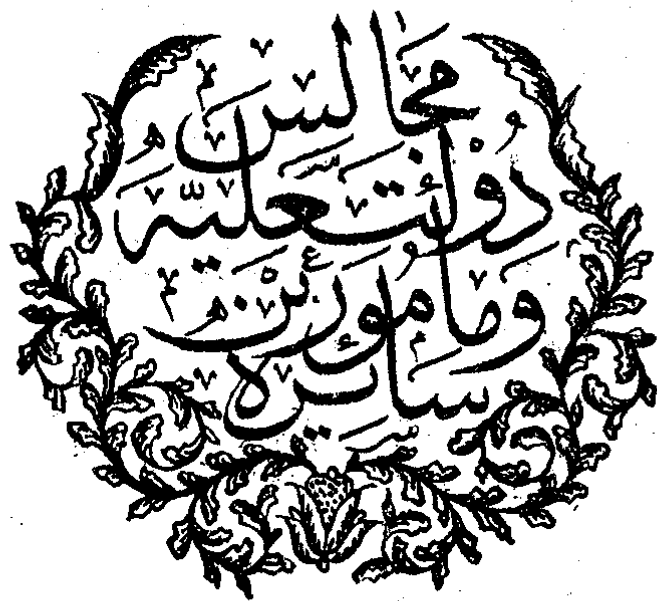 مجالس
دولتعليه
ومأمورين
سائره